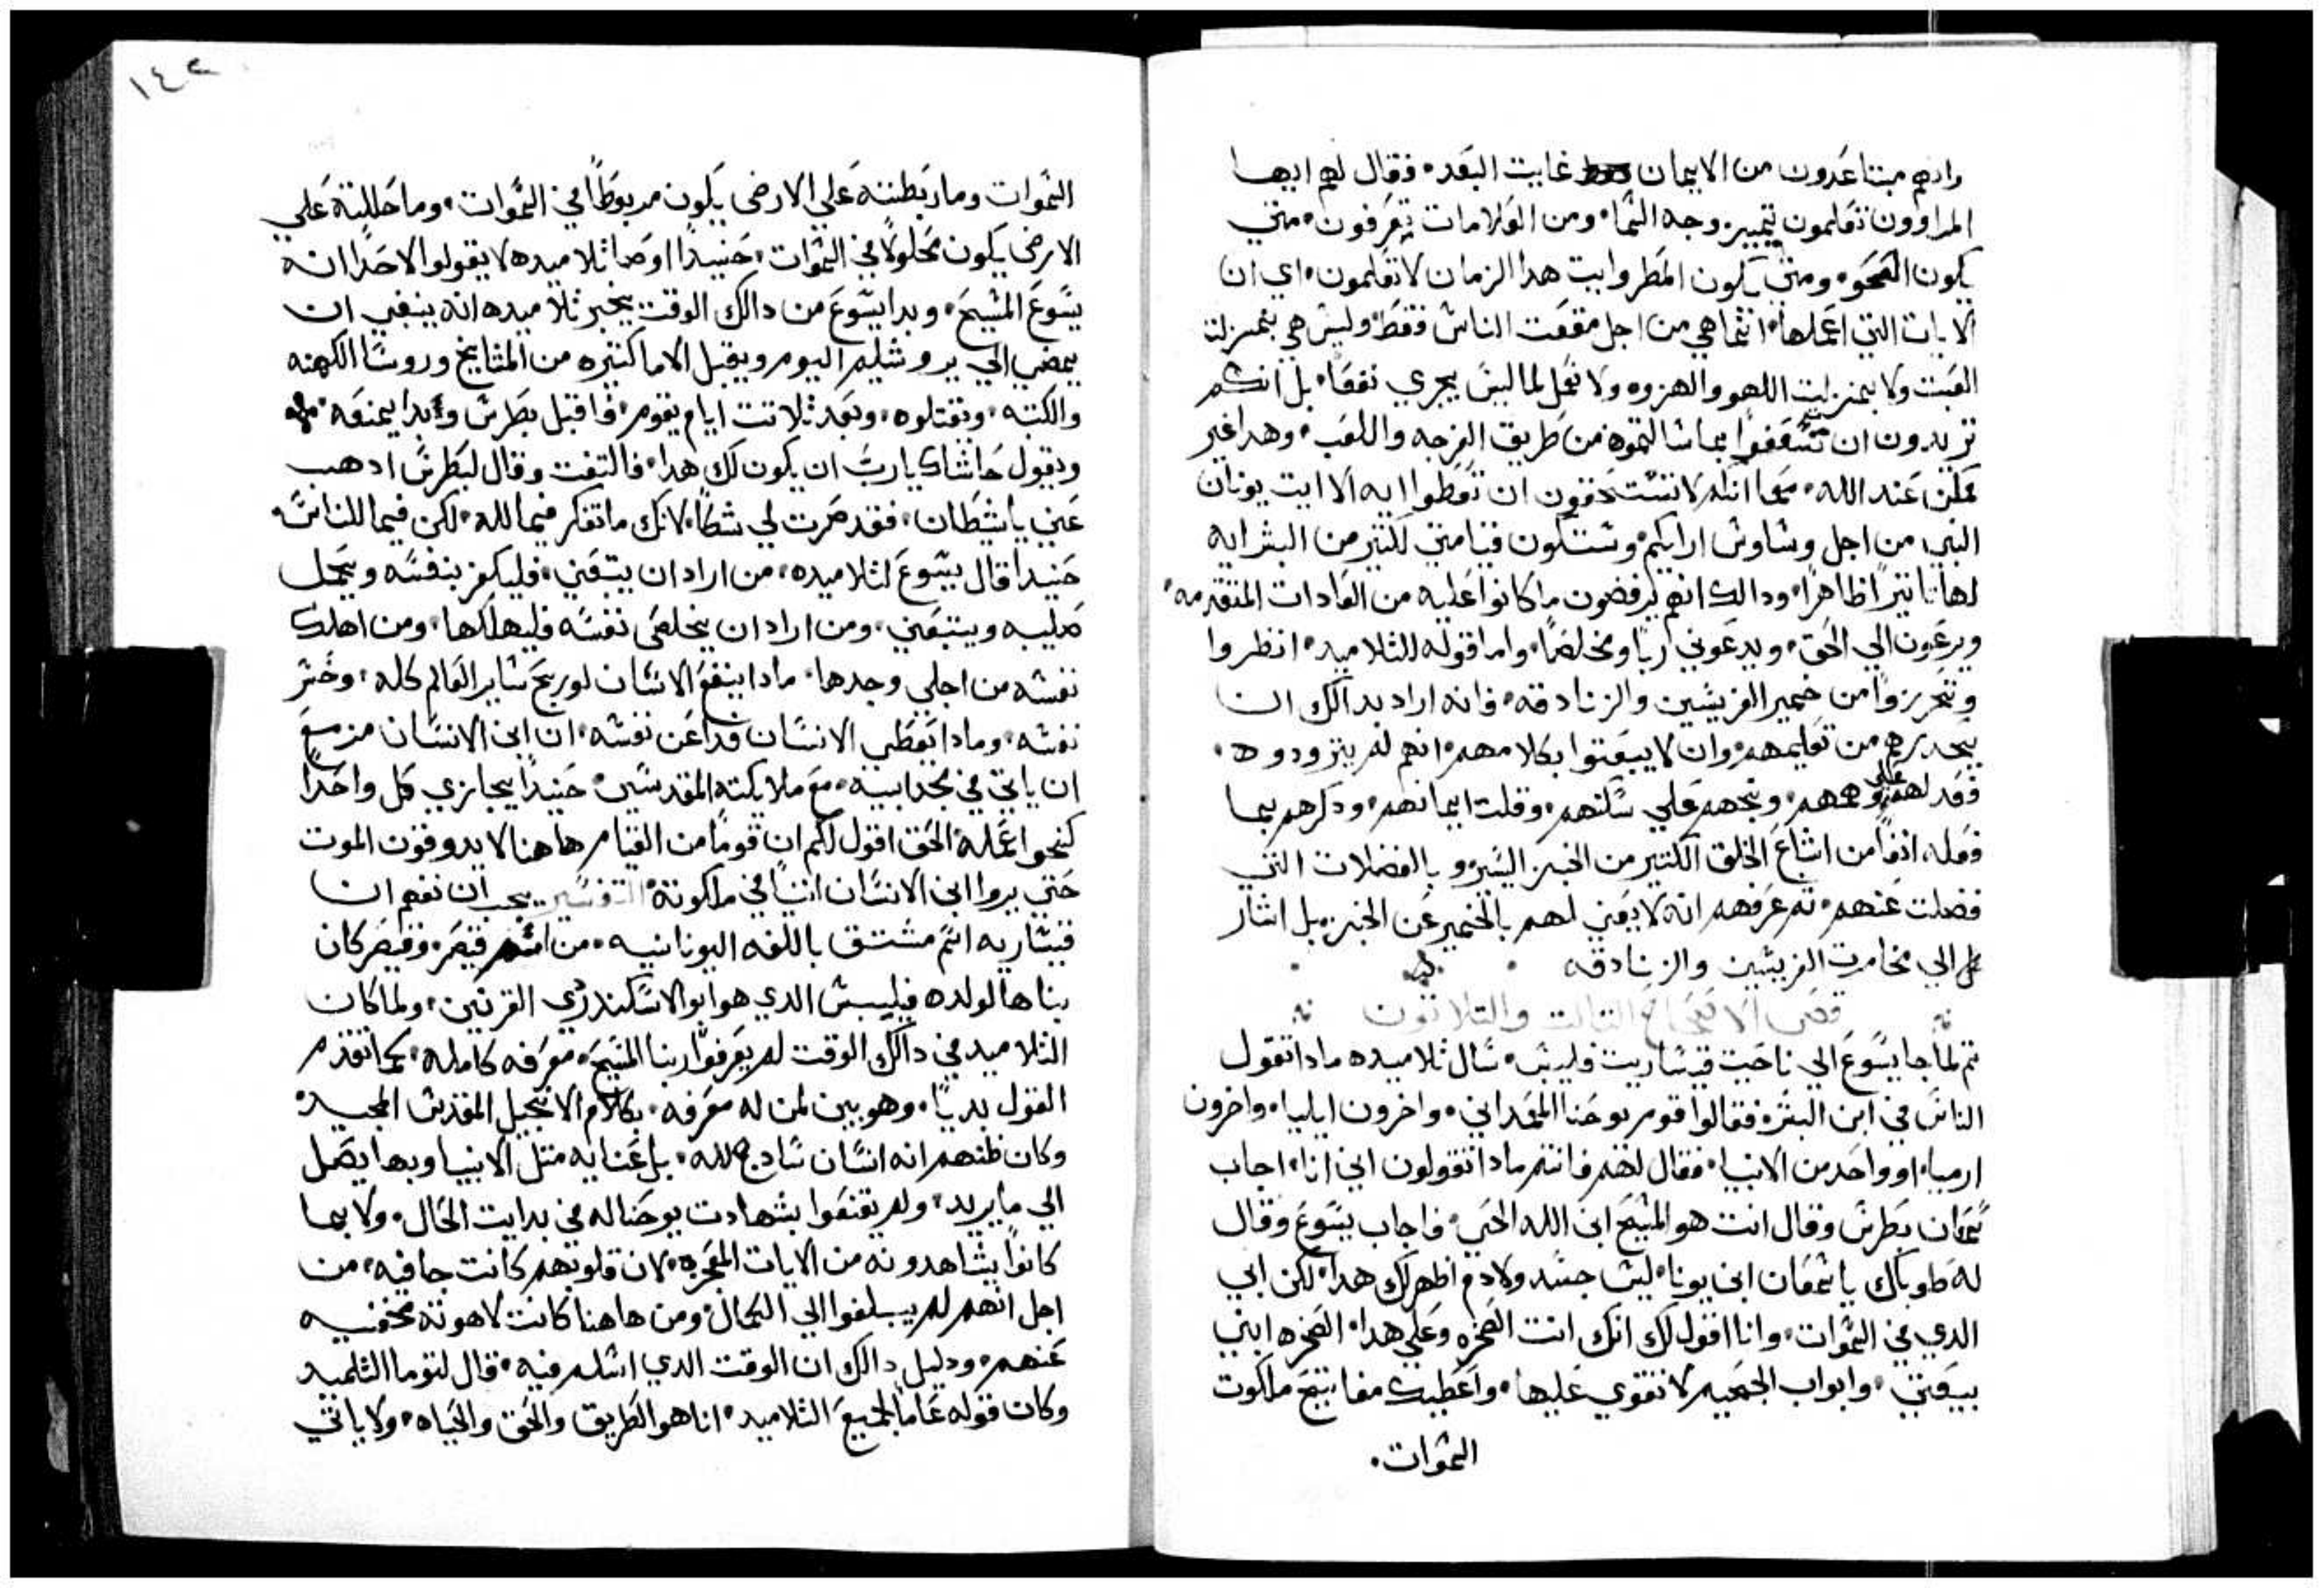 وانهم مبتاعدون من الايمان غايت البعد۰ فقال لهم ايها
المراوون تعلمون تمييز وجه السما۰ ومن العلامات تعرفون۰ متي
يكون الصحو۰ ومتي يكون المطر وايت هدا الزمان لا تعلمون۰ اي ان
الايات التي اعملها۰ انما هي من اجل منفعت الناس فقط۰ وليس هي بمنزلت
العبت ولا بمنزلت اللهو والهزوه ولا نعمل لما ليس يجري نفعا۰ بل انكم
تريدون ان بما شالتموه من طريق الفرجه واللعب۰ وهدا غير
ممكن عند الله۰ كما انكم لا تستحقون ان تعطوا ايه الا ايت يونان
النبي من اجل وساوس ارايكم۰ وستكون قيامتي لكتير من البشر ايه
لها تاتيرا ظاهرا۰ ودالك انهم يرفضون ما كانوا عليه من العادات المتقدمه۰
ويرجعون الي الحق۰ ويدعوني ربا ومخلصا۰ واما قوله للتلاميد۰ انظروا
وتحرزوا من خمير الفريسين والزنادقه۰ فانه اراد بدالك ان
يحدرهم من تعليمهم۰ وان لا يعبتوا بكلامهم۰ انهم لم يتزودوه۰
فعدلهم علي وهمهم۰ وبخهم علي شكهم۰ وقلت ايمانهم۰ ودكرهم بما
فعله انفا من اشباع الخلق الكتير من الخبز اليسير وبالفضلات التي
فضلت عنهم۰ تم عرفهم انه لا يعني لهم بالخمير عن الخبز۰ بل اشار
الي مخامرت الفريسين والزنادقه
فصل الاصحاح التالت والتلاتون
تم لما جا يسوع الي ناحيت قيساريت فليبس۰ سال تلاميده مادا تقول
الناس في ابن البشر۰ فقالوا قوم يوحنا المعمداني۰ واخرون ايليا۰ واخرون
ارميا۰ او واحد من الانبيا۰ فقال لهم فانتم مادا تقولون اني انا۰ اجاب
سمعان بطرس وقال انت هو المسيح ابن الله الحي۰ فاجاب يسوع وقال
له طوباك يا سمعان ابن يونا۰ ليس جسد ولا دم اظهر لك هدا۰ لكن ابي
الدي في السموات۰ وانا اقول لك انك انت الصخره وعلي هدا۰ الصخره ابني
بيعتي۰ وابواب الجحيم لا تقوي عليها۰ واعطيك مفاتيح ملكوت
السموات۰
١٤٢
السموات وما ربطته علي الارض يكون مربوطا في السموات۰ وما حللته علي
الارض يكون محلولا في السموات۰ حنيدا اوصا تلاميده لا يقولوا لاحدا انه
يسوع المسيح۰ وبدا يسوع من دالك الوقت يخبر تلاميده انه ينبغي ان
يمضي الي يروشليم اليوم ويقبل الاما كتيره من المشايخ وروسا الكهنه
والكتبه۰ وتقتلوه۰ وبعد تلاتت ايام يقوم۰ فاقبل بطرس وبدا يمنعه۰
ويقول حاشاك يا رب ان يكون لك هدا۰ فالتفت وقال لبطرس ادهب
عني يا شيطان۰ فقد صرت لي شكا۰ لانك ما تفكر فيما لله۰ لكن فيما للناس۰
حنيدا قال يسوع لتلاميده۰ من اراد ان يتبعني۰ فليكفر بنفسه ويحمل
صليبه ويتبعني۰ ومن اراد ان يخلص نفسه فليهلكها۰ ومن اهلك
نفسه من اجلي وجدها۰ مادا ينفع الانسان لو ربح ساير العالم كله۰ وخسر
نفسه۰ ومادا يعطي الانسان فدا عن نفسه۰ ان ابن الانسان مزمع
ان ياتي في مجد ابيه۰ مع ملايكته المقدسين۰ حنيدا يجازي كل واحدا
كنحو اعماله۰ الحق اقول لكم ان قوما من القيام هاهنا لا يدوقون الموت
حتي يروا ابن الانسان اتيا في ملكوته۰ التفسير يجب ان نفهم ان
قيساريه اسم مشتق باللغه اليونانيه۰ من اسم قيصر۰ وقيصر كان
بناها لولده فيليبس الدي هو ابو الاسكندر دي القرنين۰ ولما كان
التلاميد في دالك الوقت لم يعرفوا ربنا المسيح۰ معرفه كامله۰ كما تقدم
القول بديا۰ وهو بين لمن له معرفه۰ بكلام الانجيل المقدس المجيد۰
وكان ظنهم انه انسان سادج لله۰ بل عنايه متل الانبيا وبها يصل
الي ما يريد۰ ولم يقتنعوا بشهادت يوحنا له في بدايت الحال۰ ولا بما
كانوا يشاهدونه من الايات المعجزه۰ لان قلوبهم كانت جافيه۰ من
اجل انهم لم يبلغوا الي الكمال۰ ومن هاهنا كانت لاهوته مخفيه
عنهم۰ ودليل دالك ان الوقت الدي اسلم فيه۰ قال لتوما التلميد
وكان قوله عاما لجميع التلاميد۰ انا هو الطريق والحق والحياه۰ ولا ياتي